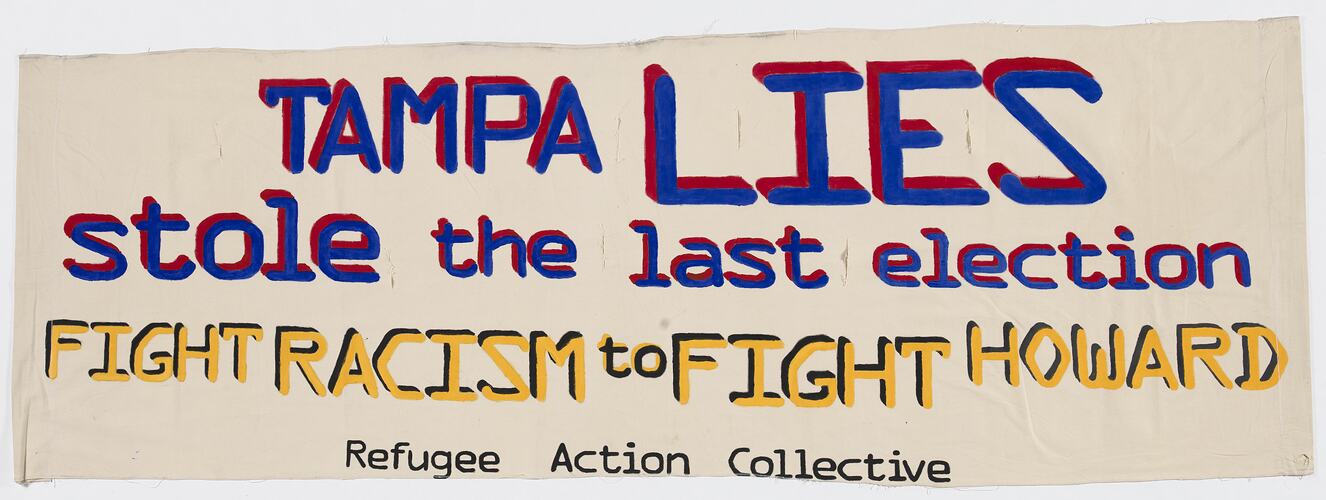 TAMPA LIES
stole the last election
FIGHT RACISM to FIGHT HOWARD
Refugee Action Collective